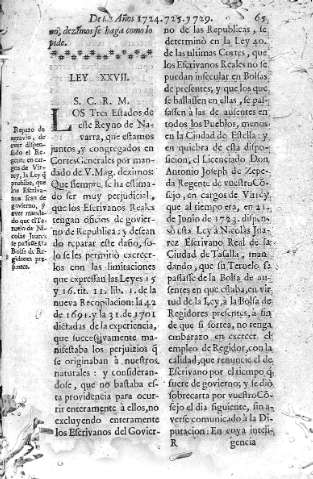 De los Años 1724.725.1729. 65
no, dezimos se haga como lo
pide.
LEY XXVII.
S. C. R. M.
LOS Tres Estados de
este Reyno de Na-
varra, que estamos
juntos, y congregados en
Cortes Generales por man-
dado de V. Mag. dezimos:
Que siempre, se ha estima-
do ser muy perjudicial, que
los Escrivanos Reales
tengan oficios de govier-
no de Republica: y desean
do reparar este daño, so-
lo se les permitiò exercer-
los con las limitaciones
que expressan las Leyes 15
y 16. tit. 11. lib. 1. de la
nueva Recopilacion: la 42
de 1691. y la 31. de 1701
dictadas de la experiencia,
que successivamente ma-
nifestaba los perjuizios q̃
se originaban à nuestros
naturales: y consideran-
dose, que no bastaba es-
ta providencia para ocur-
rir enteramente à ellos, no
excluyendo enteramente
los Escrivanos del Govier-
no de las Republicas, se
determinò en la Ley 40.
de las ultimas Cortes, que los
Escrivanos Reales no se
puedan insecular en Bolsas
de presentes, y que los que
se hallassen en ellas, se pas-
sassen à las de ausentes en
todos los Pueblos, menos
en la Ciudad de Estella: y
en quiebra de esta disposi-
cion, el Licenciado Don
Antonio Joseph de Zepe-
da Regente de vuestro Cõ-
sejo, en cargos de Virrey,
que al tiempo era, en 21.
de Junio de 1723. dispen-
sò esta Ley à Nicolas Jua-
rez Escrivano Real de la
Ciudad de Tafalla, man-
dando, que su Teruelo se
passasse de la Bolsa de au-
sentes en que estaba, en vir-
tud de la Ley, à la Bolsa de
Regidores presentes, à fin
de que si sortea, no tenga
embarazo en exercer el
empleo de Regidor, con la
calidad, que renuncie el de
Escrivano por el tiempo q̃
fuere de govierno; y se diò
sobrecarta por vuestro Cõ-
sejo el dia siguiente, sin a-
verse comunicado à la Di-
putacion: En cuya inteli-
R gencia